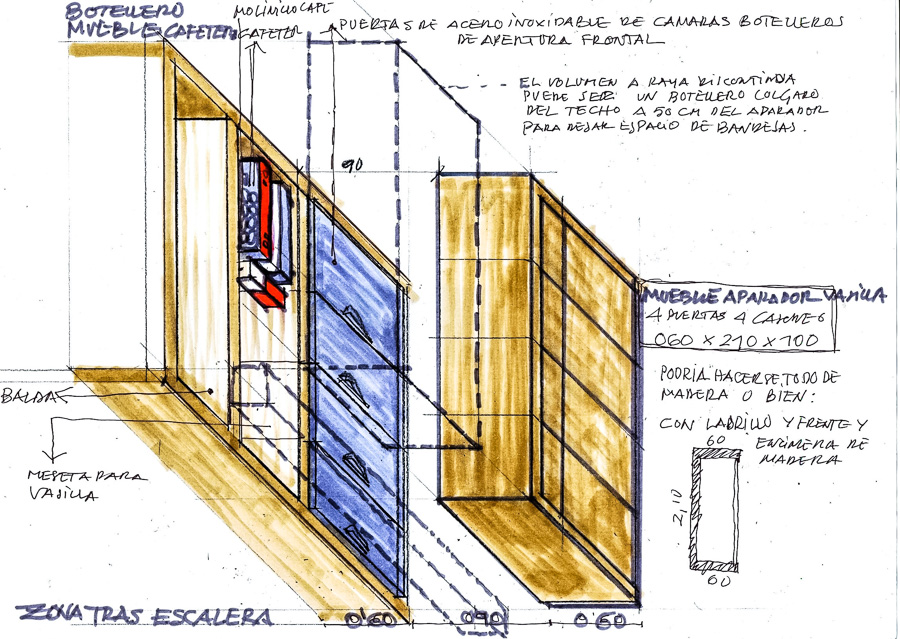 BOTELLERO
MUEBLE CAFETERA
MOLINILLO CAFE
CAFETER
PUERTAS DE ACERO INOXIDABLE DE CAMARAS BOTELLEROS
DE APENTURA FRONTAL
EL VOLUMEN A RAYA DISCONTINUA
PUEDE SER UN BOTELLERO COLGADO
DEL TECHO A 50 CM DEL APARADOR
PARA DEJAR ESPACIO DE BANDEJAS.
90
MUEBLE APARADOR VAJILLA
4 PUERTAS 4 CAJONES
060 x 210 x 100
PODRIA HACERSE TODO DE
MADERA O BIEN:
CON LADRILLO Y FRENTE Y
ENCIMERA DE
MADERA
60
2,10
60
BALDAS
MESETA PARA
VAJILLA
ZONA TRAS ESCALERA
0'60
090
0'60